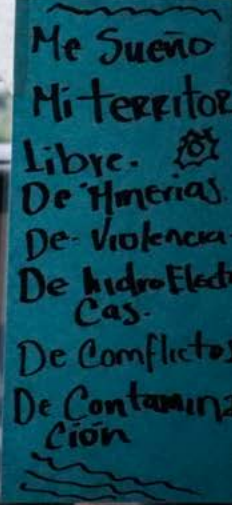 Me Sueño
Mi territor
Libre.
De Hmerias.
De Violencia
De hidroElect
Cas.
De Comflictos
De Contamina
ción